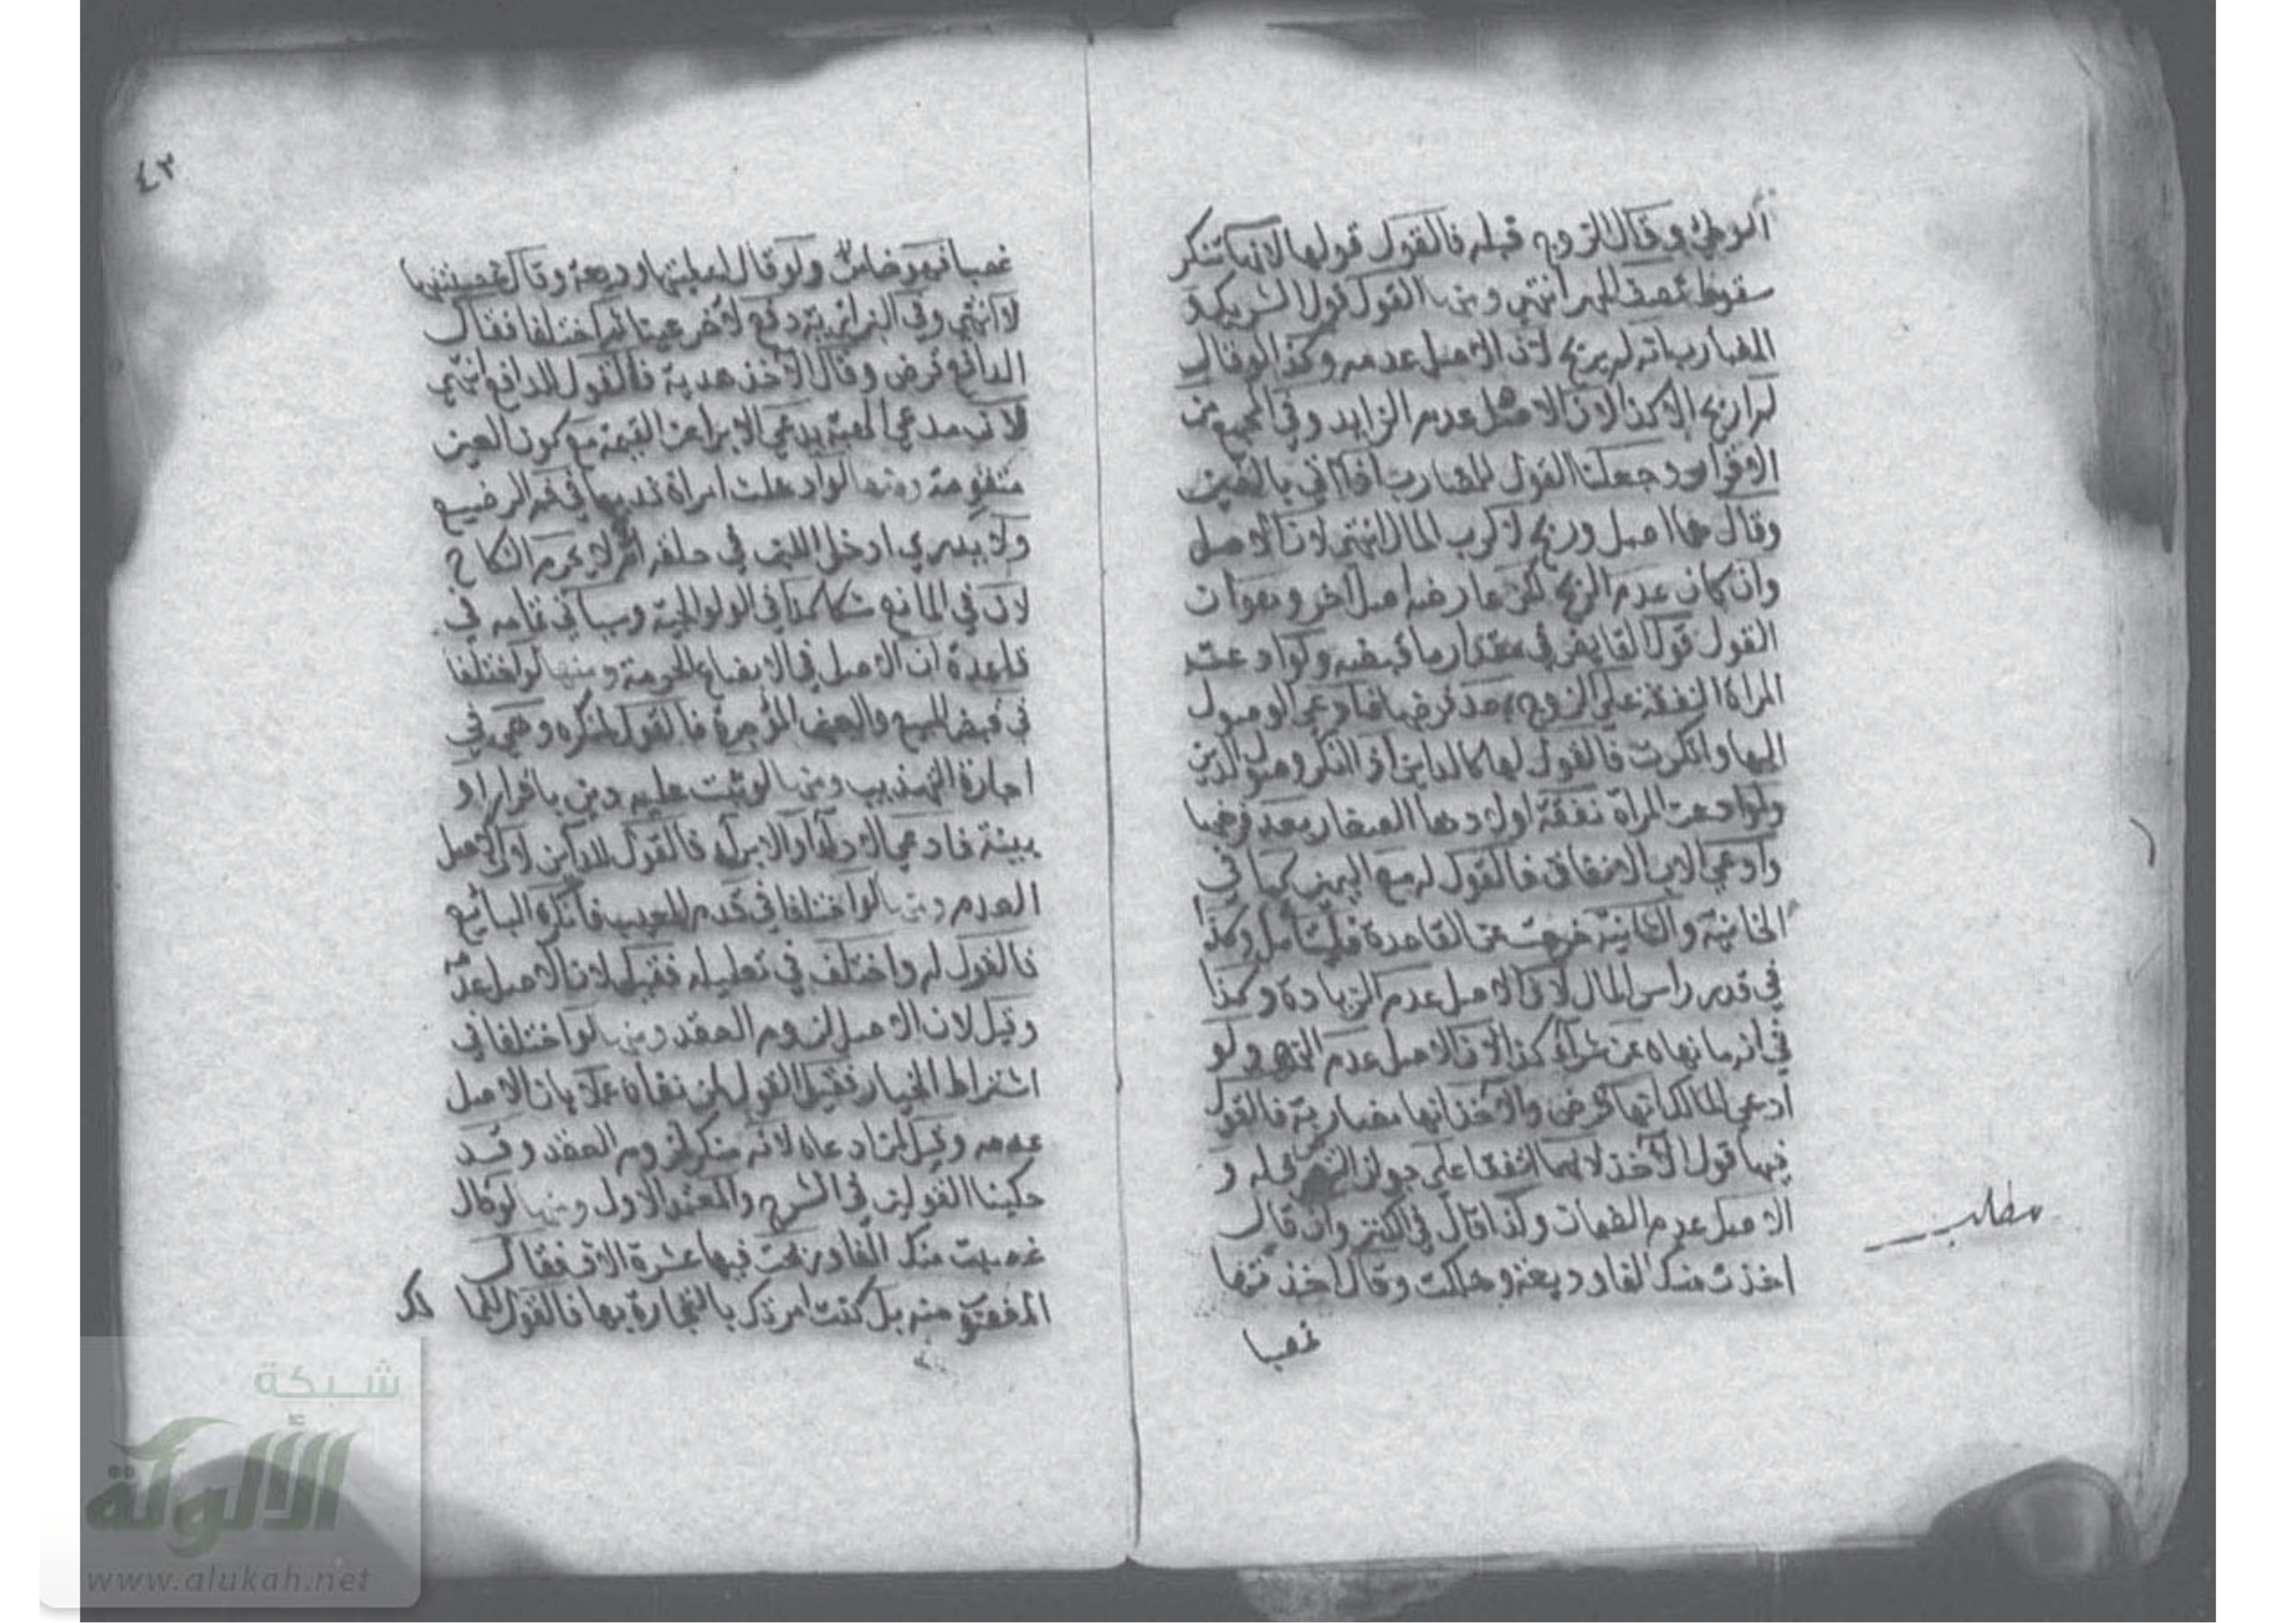 الوطئ وقال الزوج قبله فالقول قولها لانها تنكر
سقوط نصف المهر انتهى ومنها القول قول الشريك و
المضارب انه لم يربح لان الاصل عدمه وكذا لو قال
لم اربح الا كذا لان الاصل عدم الزايد وفي المجمع من
الاقرار وجعلنا القول للمضارب اذا اتى بالفين
وقال هما اصل وربح لا لرب المال انتهى لان الاصل
وان كان عدم الربح لكن عارضه اصل اخر وهو ان
القول قول القابض في مقدار ما قبضه ولو ادعت
المراة النفقة على الزوج بعد فرضها فادعى الوصول
اليها وانكرت فالقول لها كالداين اذا انكر وصول الدين
ولو ادعت المراة نفقة اولادها الصغار بعد فرضها
وادعى الاب الانفاق فالقول له مع اليمين كما في
الخانية والثانية خرجت عن القاعدة فليتامل وكذا
في قدر راس المال لان الاصل عدم الزيادة وكذا
في انه ما نهاه عن شراء كذا لان الاصل عدم النهي ولو
ادعى المالك انها قرض والآخذ انها مضاربة فالقول
فيها قول الآخذ لانهما اتفقا على جواز التصرف له و
الاصل عدم الضمان وكذا قال في الكنز وان قال
اخذت منك الفا وديعة وهلكت وقال اخذتها
غصبا
مطلب
٤٣
غصبا فهو ضامن ولو قال اعطيتنيها وديعة وقال غصبتنيها
لا انتهى وفي البزازية دفع لآخر عينا ثم اختلفا فقال
الدافع قرض وقال الآخذ هدية فالقول للدافع انتهى
لان مدعي الهبة يدعي الابرا عن القيمة مع كون العين
متقومة ومنها لو ادخلت امراة ثديها في فم الرضيع
ولا يدري ادخل اللبن في حلقه ام لا لا يحرم النكاح
لان في المانع شكا كما في الولوالجية وسياتي تمامه في
قاعدة ان الاصل في الابضاع الحرمة ومنها لو اختلفا
في قبض المبيع والعين المؤجرة فالقول لمنكره وهي في
اجارة التهذيب ومنها لو ثبت عليه دين باقرار او
بينة فادعى الادآء او الابرآء فالقول للداين لان الاصل
العدم ومنها لو اختلفا في قدم العيب فانكره البائع
فالقول له واختلف في تعليله فقيل لان الاصل عدمه
وقيل لان الاصل لزوم العقد ومنها لو اختلفا في
اشتراط الخيار فقيل القول لمن نفاه عملا بان الاصل
عدمه وقيل لمن ادعاه لانه منكر لزوم العقد وقد
حكينا القولين في الشرح والمعتمد الاول ومنها لو قال
غصبت منك الفا وربحت فيها عشرة الاف فقال
المغصوب منه بل كنت امرتك بالتجارة بها فالقول للما لك
شبكة
الألوكة
www.alukah.net